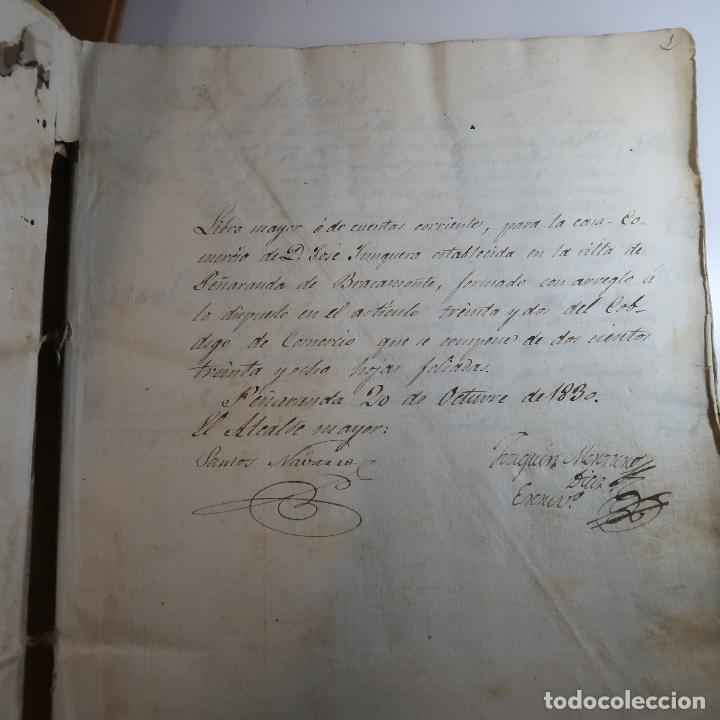 1
Libro mayor ó de cuentas corrientes, para la casa-Co-
mercio de D. José Junquera establecida en la villa de
Peñaranda de Bracamonte, formado con arreglo á
lo dispuesto en el artículo treinta y dos del Cod-
digo de Comercio que se compone de dos cientos
treinta y ocho hojas foliadas.
Peñaranda 20 de Octubre de 1830.
El Alcalde mayor:
Santos Navarro
Joaquin
Diez
todocoleccion
todocoleccion.net